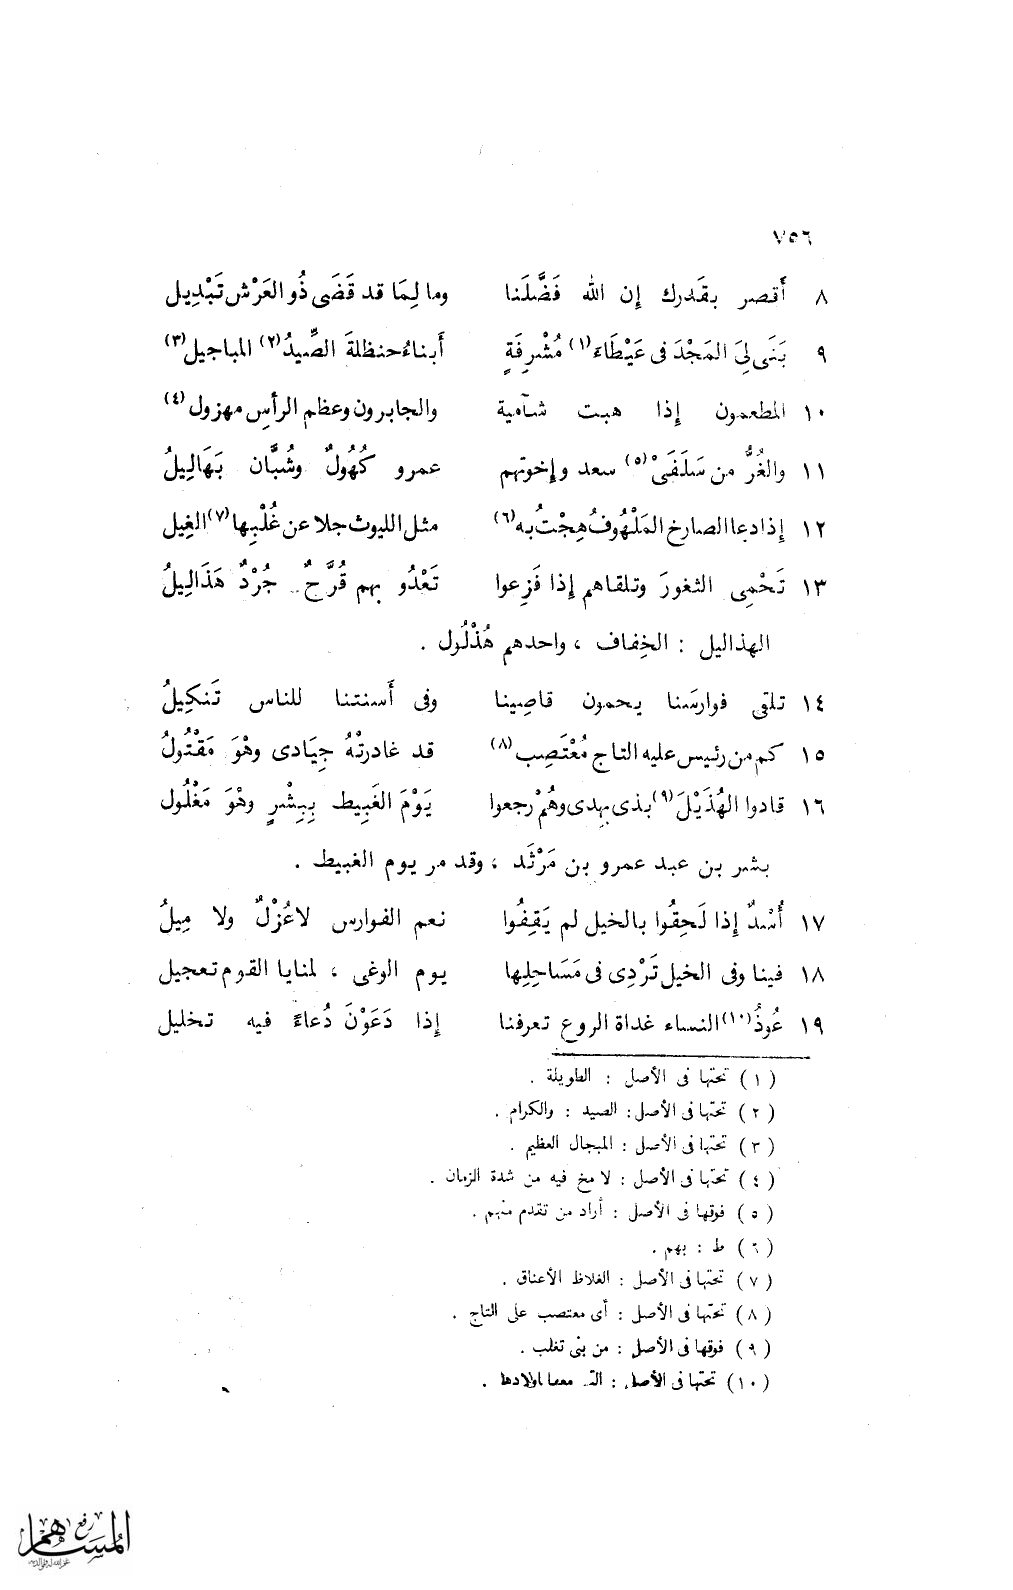 ٧٥٦
٨ أَقصر بقَدرك إن الله فَضَّلَنا وما لِمَا قد قَضَى ذُو العَرْش تَبْدِيل
٩ بَنَى لِىَ المَجْدَ فى عَيْطَاءَ (١) مُشْرِفَةٍ أبناءُ حنظلةَ الصِّيدُ (٢) المباجيل (٣)
١٠ المطعمون إذا هبت شآمية والجابرون وعظم الرأس مهزول (٤)
١١ والغُرُّ من سَلَفَىْ (٥) سعد وإخوتهم عمرو كُهُولٌ وشُبَّان بَهَالِيلُ
١٢ إذا دعا الصارخ المَلْهُوفُ هِجْتُ به (٦) مثل الليوث جلا عن غُلْبِها (٧) الغِيل
١٣ تَحْمِى الثغورَ وتلقاهم إذا فَزِعوا تَعْدُو بهم قُرَّحٌ جُرْدٌ هَذَالِيلُ
الهذاليل : الخِفاف ، واحدهم هُذْلُول .
١٤ تلقى فوارسَنا يحمون قاصِينا وفى أَسنتنا للناس تَنكِيلُ
١٥ كم من رئيس عليه التاج مُعْتَصِب (٨) قد غادرتْهُ جِيَادى وهْوَ مَقْتُولُ
١٦ قادوا الهُذَيْلَ (٩) بذى بهدى وهُمْ رجعوا يَوْمَ الغَبِيط بِبِشْرٍ وهْوَ مَغْلُول
بشر بن عبد عمرو بن مَرْثَد ، وقد مر يوم الغبيط .
١٧ أُسْدٌ إذا لَحِقُوا بالخيل لم يَقِفُوا نعم الفوارس لاعُزْلٌ ولا مِيلُ
١٨ فينا وفى الخيل تَرْدِى فى مَسَاحِلِها يوم الوغى ، لمنايا القوم تعجيل
١٩ عُوذُ (١٠) النساء غداة الروع تعرفنا إذا دَعَوْنَ دُعاءً فيه تخليل
(١) تحتها فى الأصل : الطويلة .
(٢) تحتها فى الأصل : الصيد : والكرام .
(٣) تحتها فى الأصل : المبجال العظيم .
(٤) تحتها فى الأصل : لا مخ فيه من شدة الزمان .
(٥) فوقها فى الأصل : أراد من تقدم منهم .
(٦) ط : بهم .
(٧) تحتها فى الأصل : الغلاظ الأعناق .
(٨) تحتها فى الأصل : أى معتصب على التاج .
(٩) فوقها فى الأصل : من بنى تغلب .
(١٠) تحتها فى الأصل : معها أولادها .
رفع
المساهم